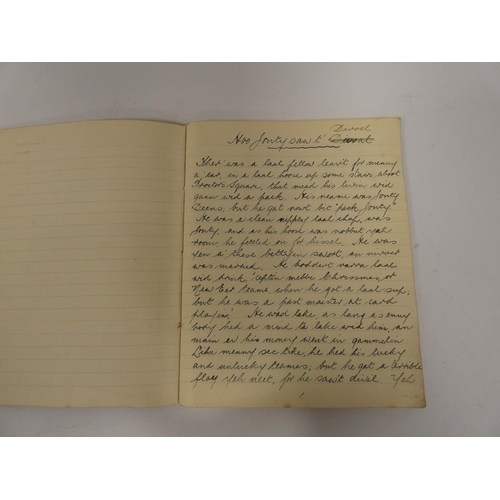 Divvel
Hoo Jonty saw t' Duvat
Ther was a laal fellow leav't for meanny
a 'ear, in a laal hoose up some stairs, aboot
Proctor's Square, that mead his livin wid
gaan wid a pack. His neame was Jonty
Deens, but he gat nowt bit 'pack Jonty'.
He was a clean nippley laal chap, was
Jonty, and as his hoose was nobbut yah
room, he fettled on for hissel. He was
yen o' these batty'en sawort, an nivver
was married. He hoddent varra laal
wid drink, 'cepten mebbe Chrissmas, or
New Eer teame, when he got a laal sup,
but he was a past maister at card
playin'. He wad lake, as lang as enny
body hed a mind to lake wid him, an
main ev his money went in gammelin
Lake meanny sec like, he hed his lucky
and unlucky teames; but he got a terrible
flay yah neet, for he saw't divil. Yah